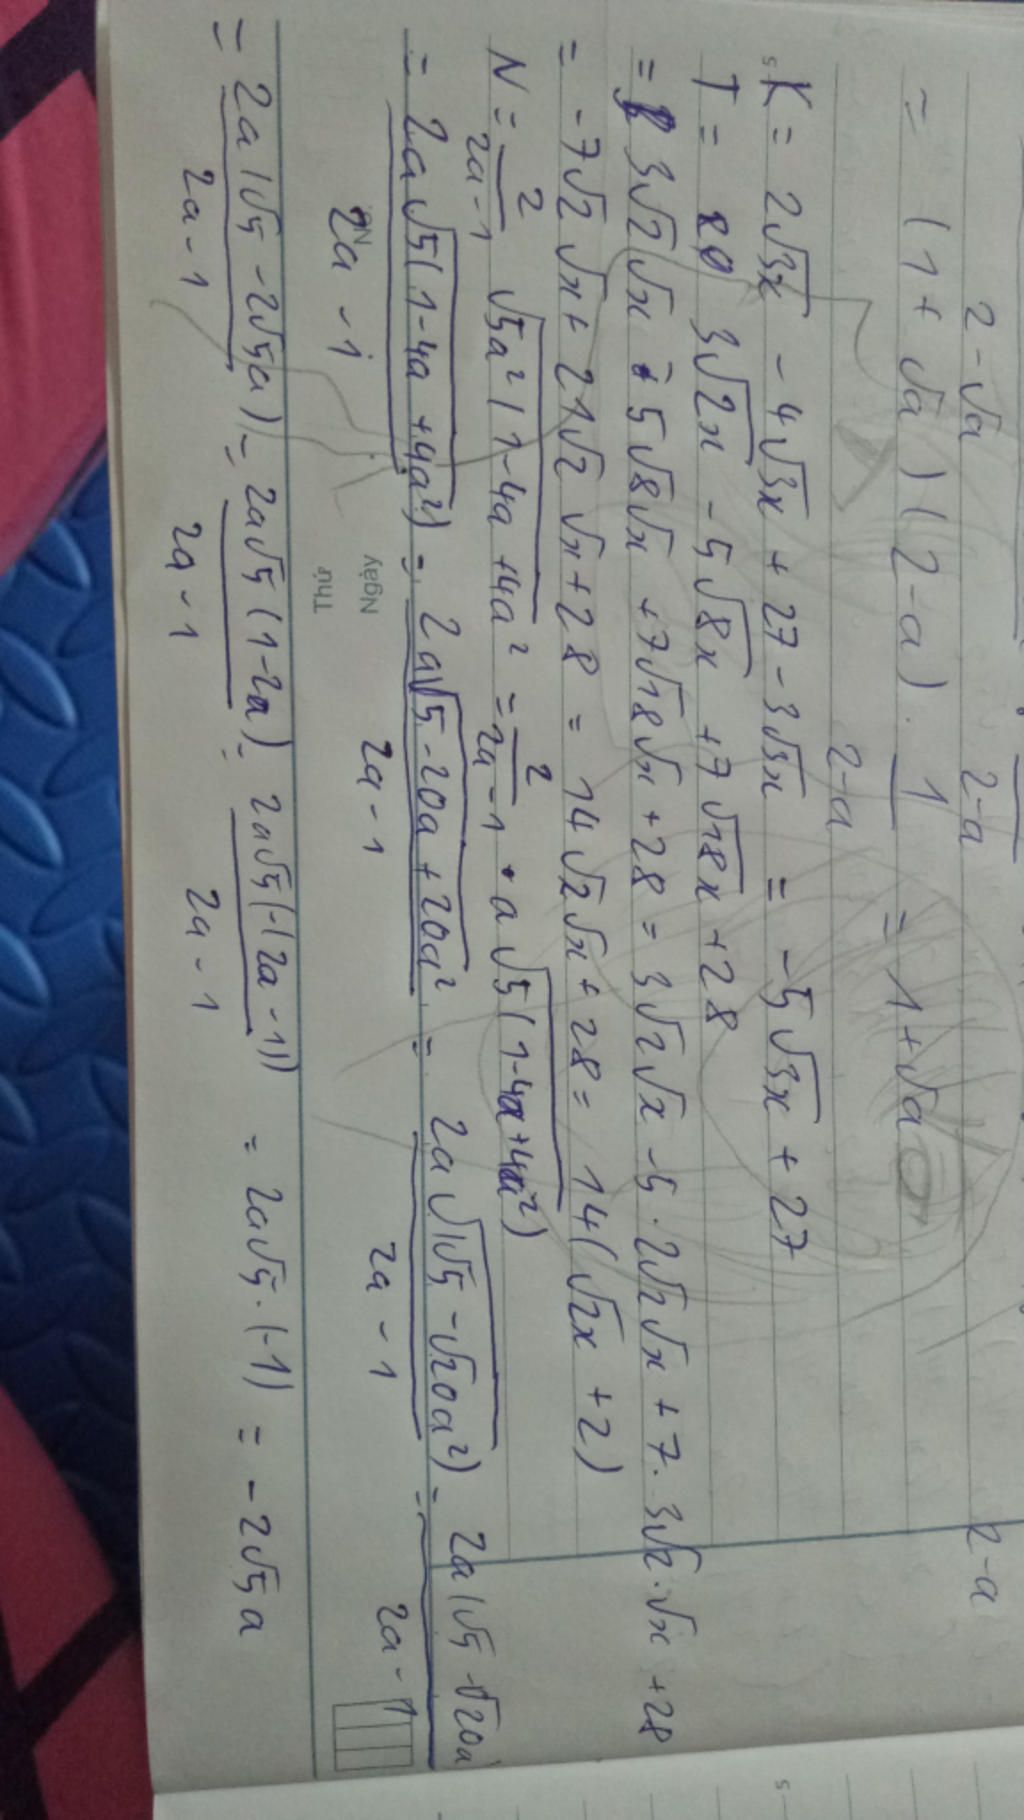 2-√a    2-a    2-a
= (1+√a)(2-a) . 1/(2-a) = 1+√a
K = 2√3x - 4√3x + 27 - 3√3x = -5√3x + 27
T = 3√2x - 5√8x + 7√18x + 28
= 3√2√x - 5√8√x + 7√18√x + 28 = 3√2√x - 5.2√2√x + 7.3√2.√x + 28
= -7√2√x + 21√2√x + 28 = 14√2√x + 28 = 14(√2x + 2)
N = 2/(2a-1) √5a²(1-4a+4a² = 2/(2a-1) . a√5(1-4a+4a²)
= 2a√5(1-4a+4a²)/(2a-1) = 2a√5-20a+20a²/(2a-1) = 2a√(√5-√20a²)/(2a-1) = 2a(√5-√20a)/(2a-1)
Ngày
Thứ
= 2a(√5-2√5a)/(2a-1) = 2a√5(1-2a)/(2a-1) = 2a√5(-(2a-1))/(2a-1) = 2a√5.(-1) = -2√5a